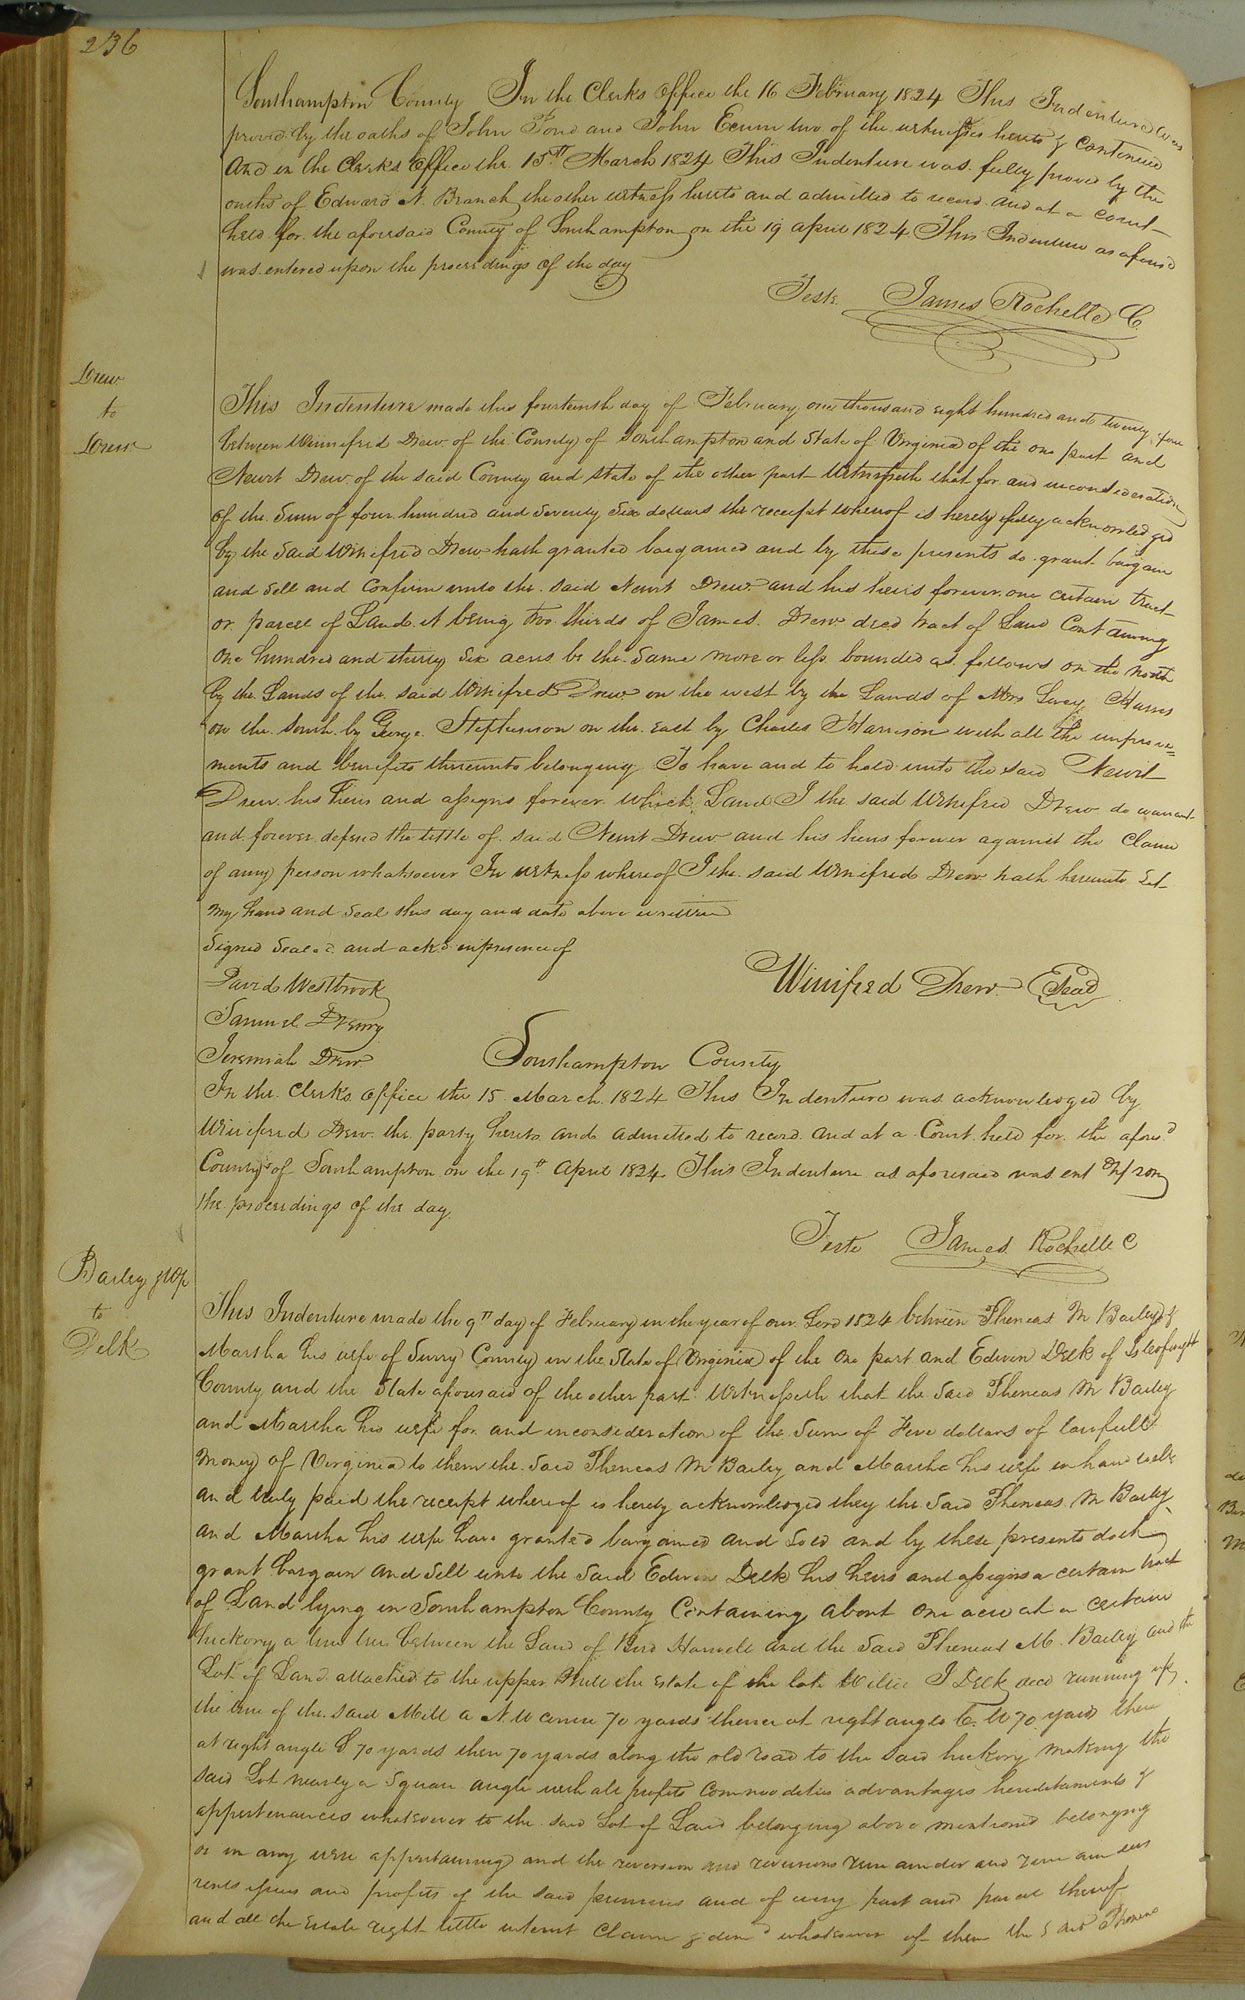 236
Southampton County In the Clerks Office the 16 February 1824 This Indenture was
proved by the oaths of John Pond and John Ecum two of the witnesses hereto & continued
And in the Clerks Office the 15th March 1824 This Indenture was fully proved by the
oaths of Edward N. Branch the other witness hereto and admitted to record and at a Court
held for the aforesaid County of Southampton on the 19 April 1824 This Indenture as afores'd
was entered upon the proceedings of the day
Teste James Rochelle C.
Drew
to
Drew
This Indenture made this fourteenth day of February one thousand eight hundred and twenty four
between Winnifred Drew of the County of Southampton and State of Virginia of the one part and
Newit Drew of the said County and State of the other part Witnesseth that for and in consideration
of the Sum of four hundred and Seventy Six dollars the receipt whereof is hereby fully acknowledged
by the said Winifred Drew hath granted bargained and by these presents do grant bargain
and sell and confirm unto the said Newit Drew and his heirs forever one certain tract
or parcel of Land it being two thirds of James Drew decd tract of Land Containing
One hundred and thirty Six acres be the Same more or less bounded as follows on the North
by the Lands of the said Winifred Drew on the west by the Lands of Mrs Levey Harris
on the South by George Stephenson on the East by Charles Harrison with all the improve=
ments and benefits thereunto belonging To have and to hold unto the said Newit
Drew his heirs and assigns forever which Land I the said Winifred Drew do warrant
and forever defend the tittle of said Newit Drew and his heirs forever against the Claim
of any person whatsoever In witness whereof I the said Winifred Drew hath hereunto Set
my hand and Seal this day and date above written
Signed Sealed and ackd in presence of
David Westbrook
Winifred Drew Seal
Samuel Drewry
Jeremiah Drew
Southampton County
In the Clerks Office the 15 March 1824 This Indenture was acknowledged by
Winifred Drew the party hereto and admitted to record and at a Court held for the afores'd
County of Southampton on the 19th April 1824 This Indenture as aforesaid was ent upon
the proceedings of the day
Teste James Rochelle C
Bailey & Wife
to
Delk
This Indenture made the 9th day of February in the year of our Lord 1824 between Theneas M Bailey &
Martha his wife of Surry County in the State of Virginia of the one part and Edwin Delk of Isle of wight
County and the State aforesaid of the other part Witnesseth that the Said Theneas M Bailey
and Martha his wife for and in consideration of the Sum of Five dollars of lawfull
money of Virginia to them the Said Theneas M Bailey and Martha his wife in hand well
and truly paid the receipt whereof is hereby acknowledged they the Said Theneas M Bailey
and Martha his wife have granted bargained and Sold and by these presents doth
grant bargain and Sell unto the Said Edwin Delk his heirs and assigns a certain tract
of Land lying in Southampton County Containing about One acre at a certain
hickory a line tree between the Land of Bird Harwell and the Said Theneas M. Bailey and the
Lot of Land attached to the upper Mill the Estate of the late Willie J Delk decd running up
the line of the said Mill a N W course 70 yards thence at right angles E. W 70 yards then
at right angle S 70 yards then 70 yards along the old road to the said hickory making the
said Lot nearly a Square angle with all profits Commodities advantages hereditaments &
appertenances whatsoever to the said Lot of Land belonging above mentioned belonging
or in any wise appertaining and the reversion and reversions remainder and remainders
rents issues and profits of the said premises and of every part and parcel thereof
and all the Estate right tittle interest Claim & demd whatsoever of them the Said Theneas